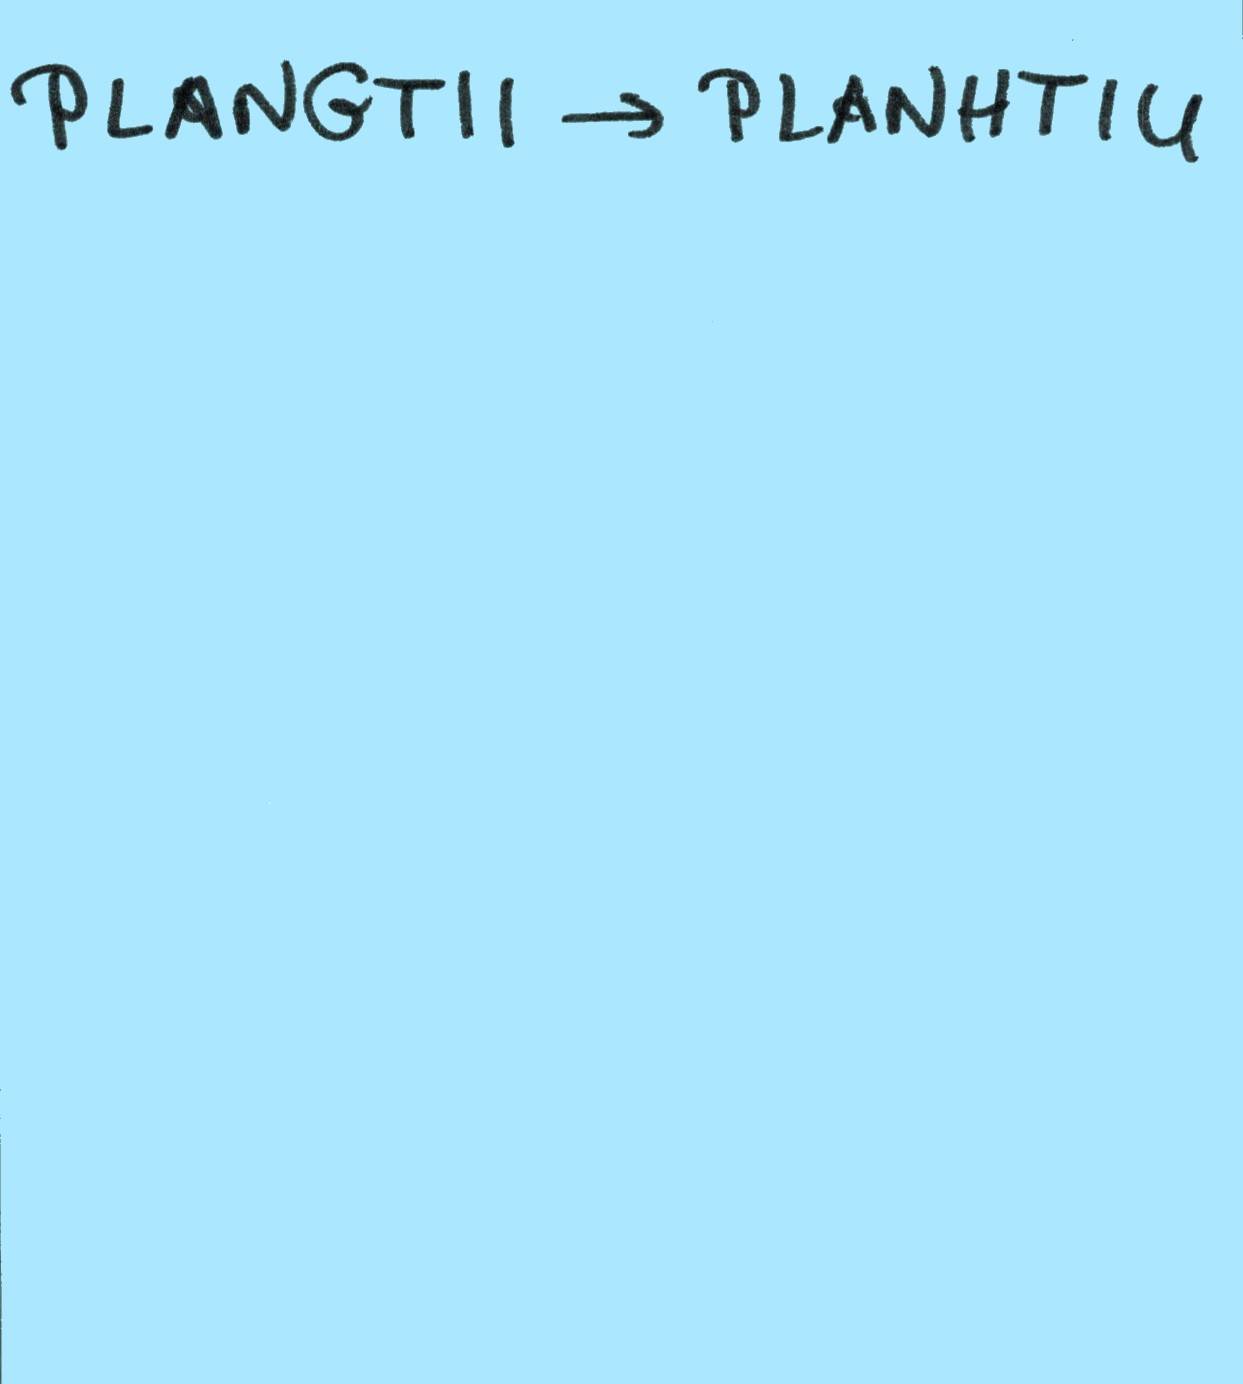 PLANGTII → PLANHTIU